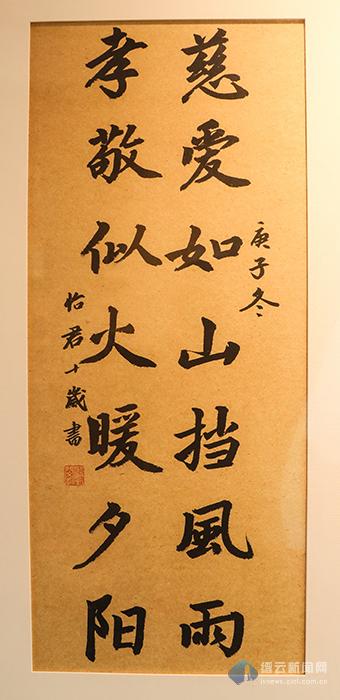 庚子冬
慈愛如山挡風雨
孝敬似火暖夕阳
怡君十歲書
缙云新闻网
jynews.zjol.com.cn